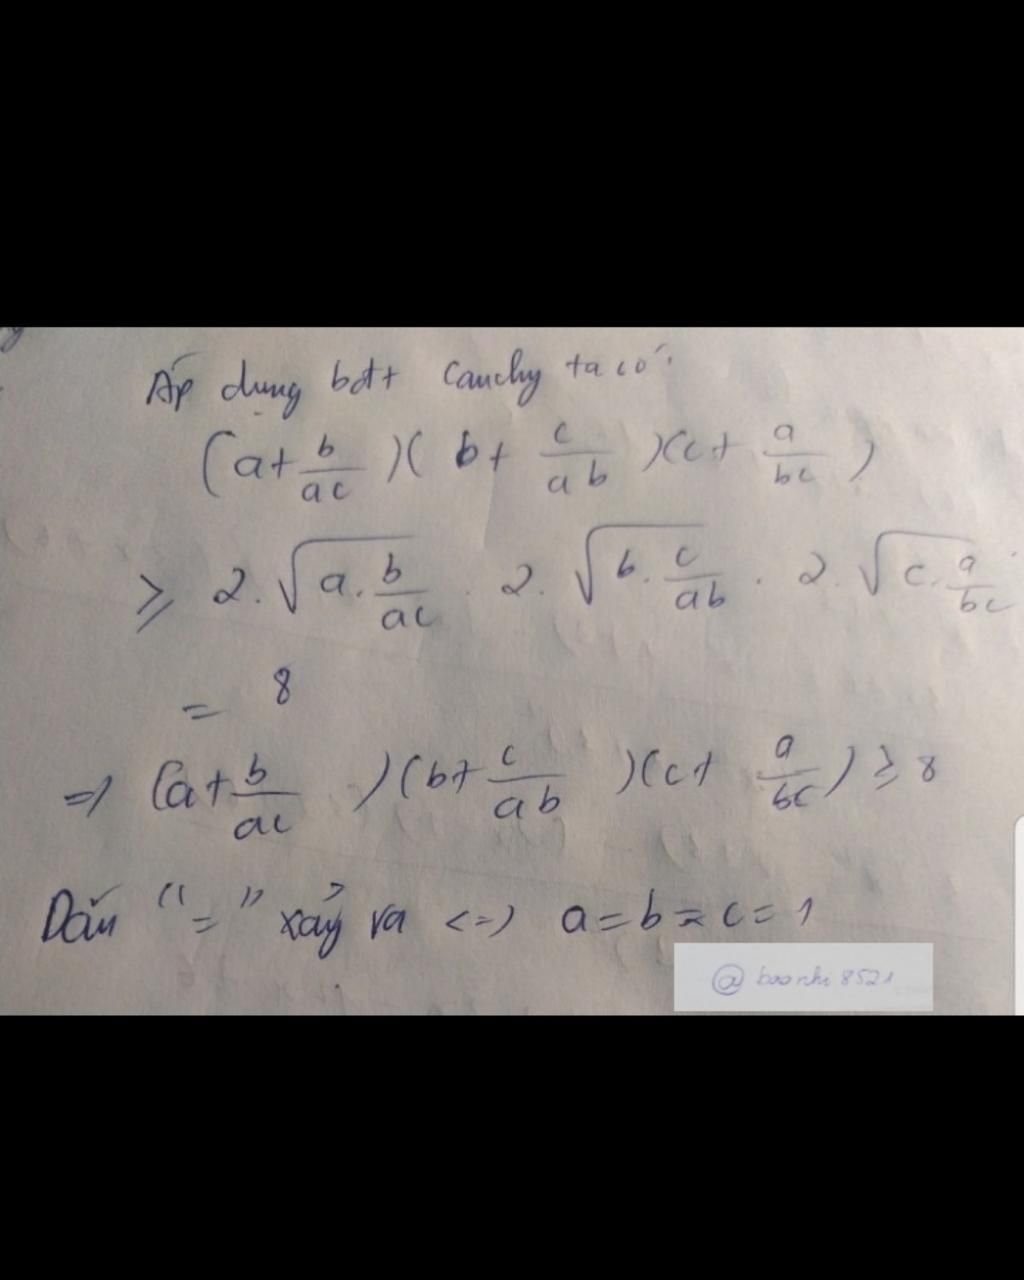 Áp dụng bđt Cauchy ta có:
(a+b/ac)(b+c/ab)(c+a/bc)
≥ 2.√(a.b/ac) . 2.√(b.c/ab) . 2.√(c.a/bc)
= 8
=> (a+b/ac)(b+c/ab)(c+a/bc) ≥ 8
Dấu "=" xảy ra <=> a=b=c=1
@baonhi8521